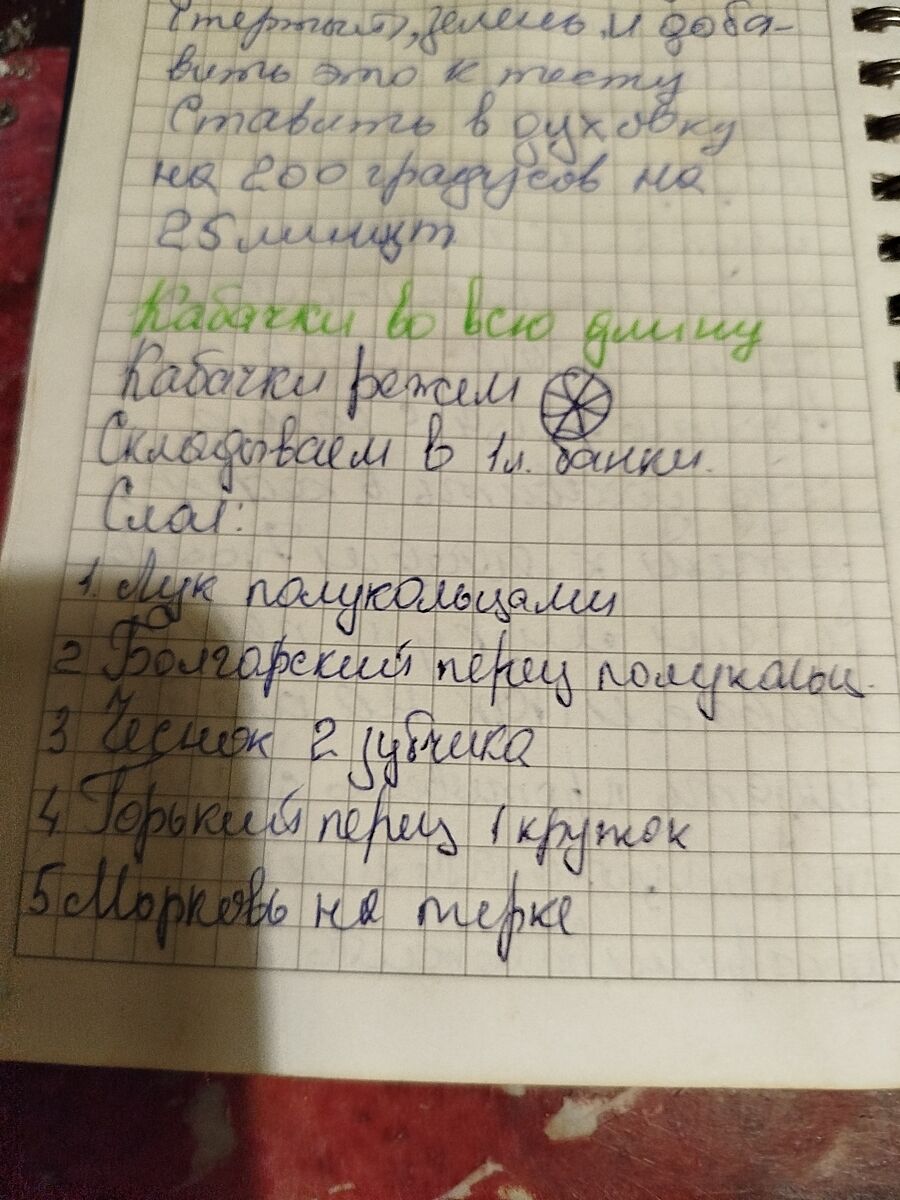 (тертый), зелень, и доба-
вить это к тесту
Ставить в духовку
на 200 градусов на
25 минут
Кабачки во всю длину
Кабачки режем
Складываем в 1л. банки.
Слог:
1. Лук полукольцами
2 Болгарский перец полукольц.
3 Чеснок 2 зубчика
4 Горький перец 1 кружок
5 Морковь на терке